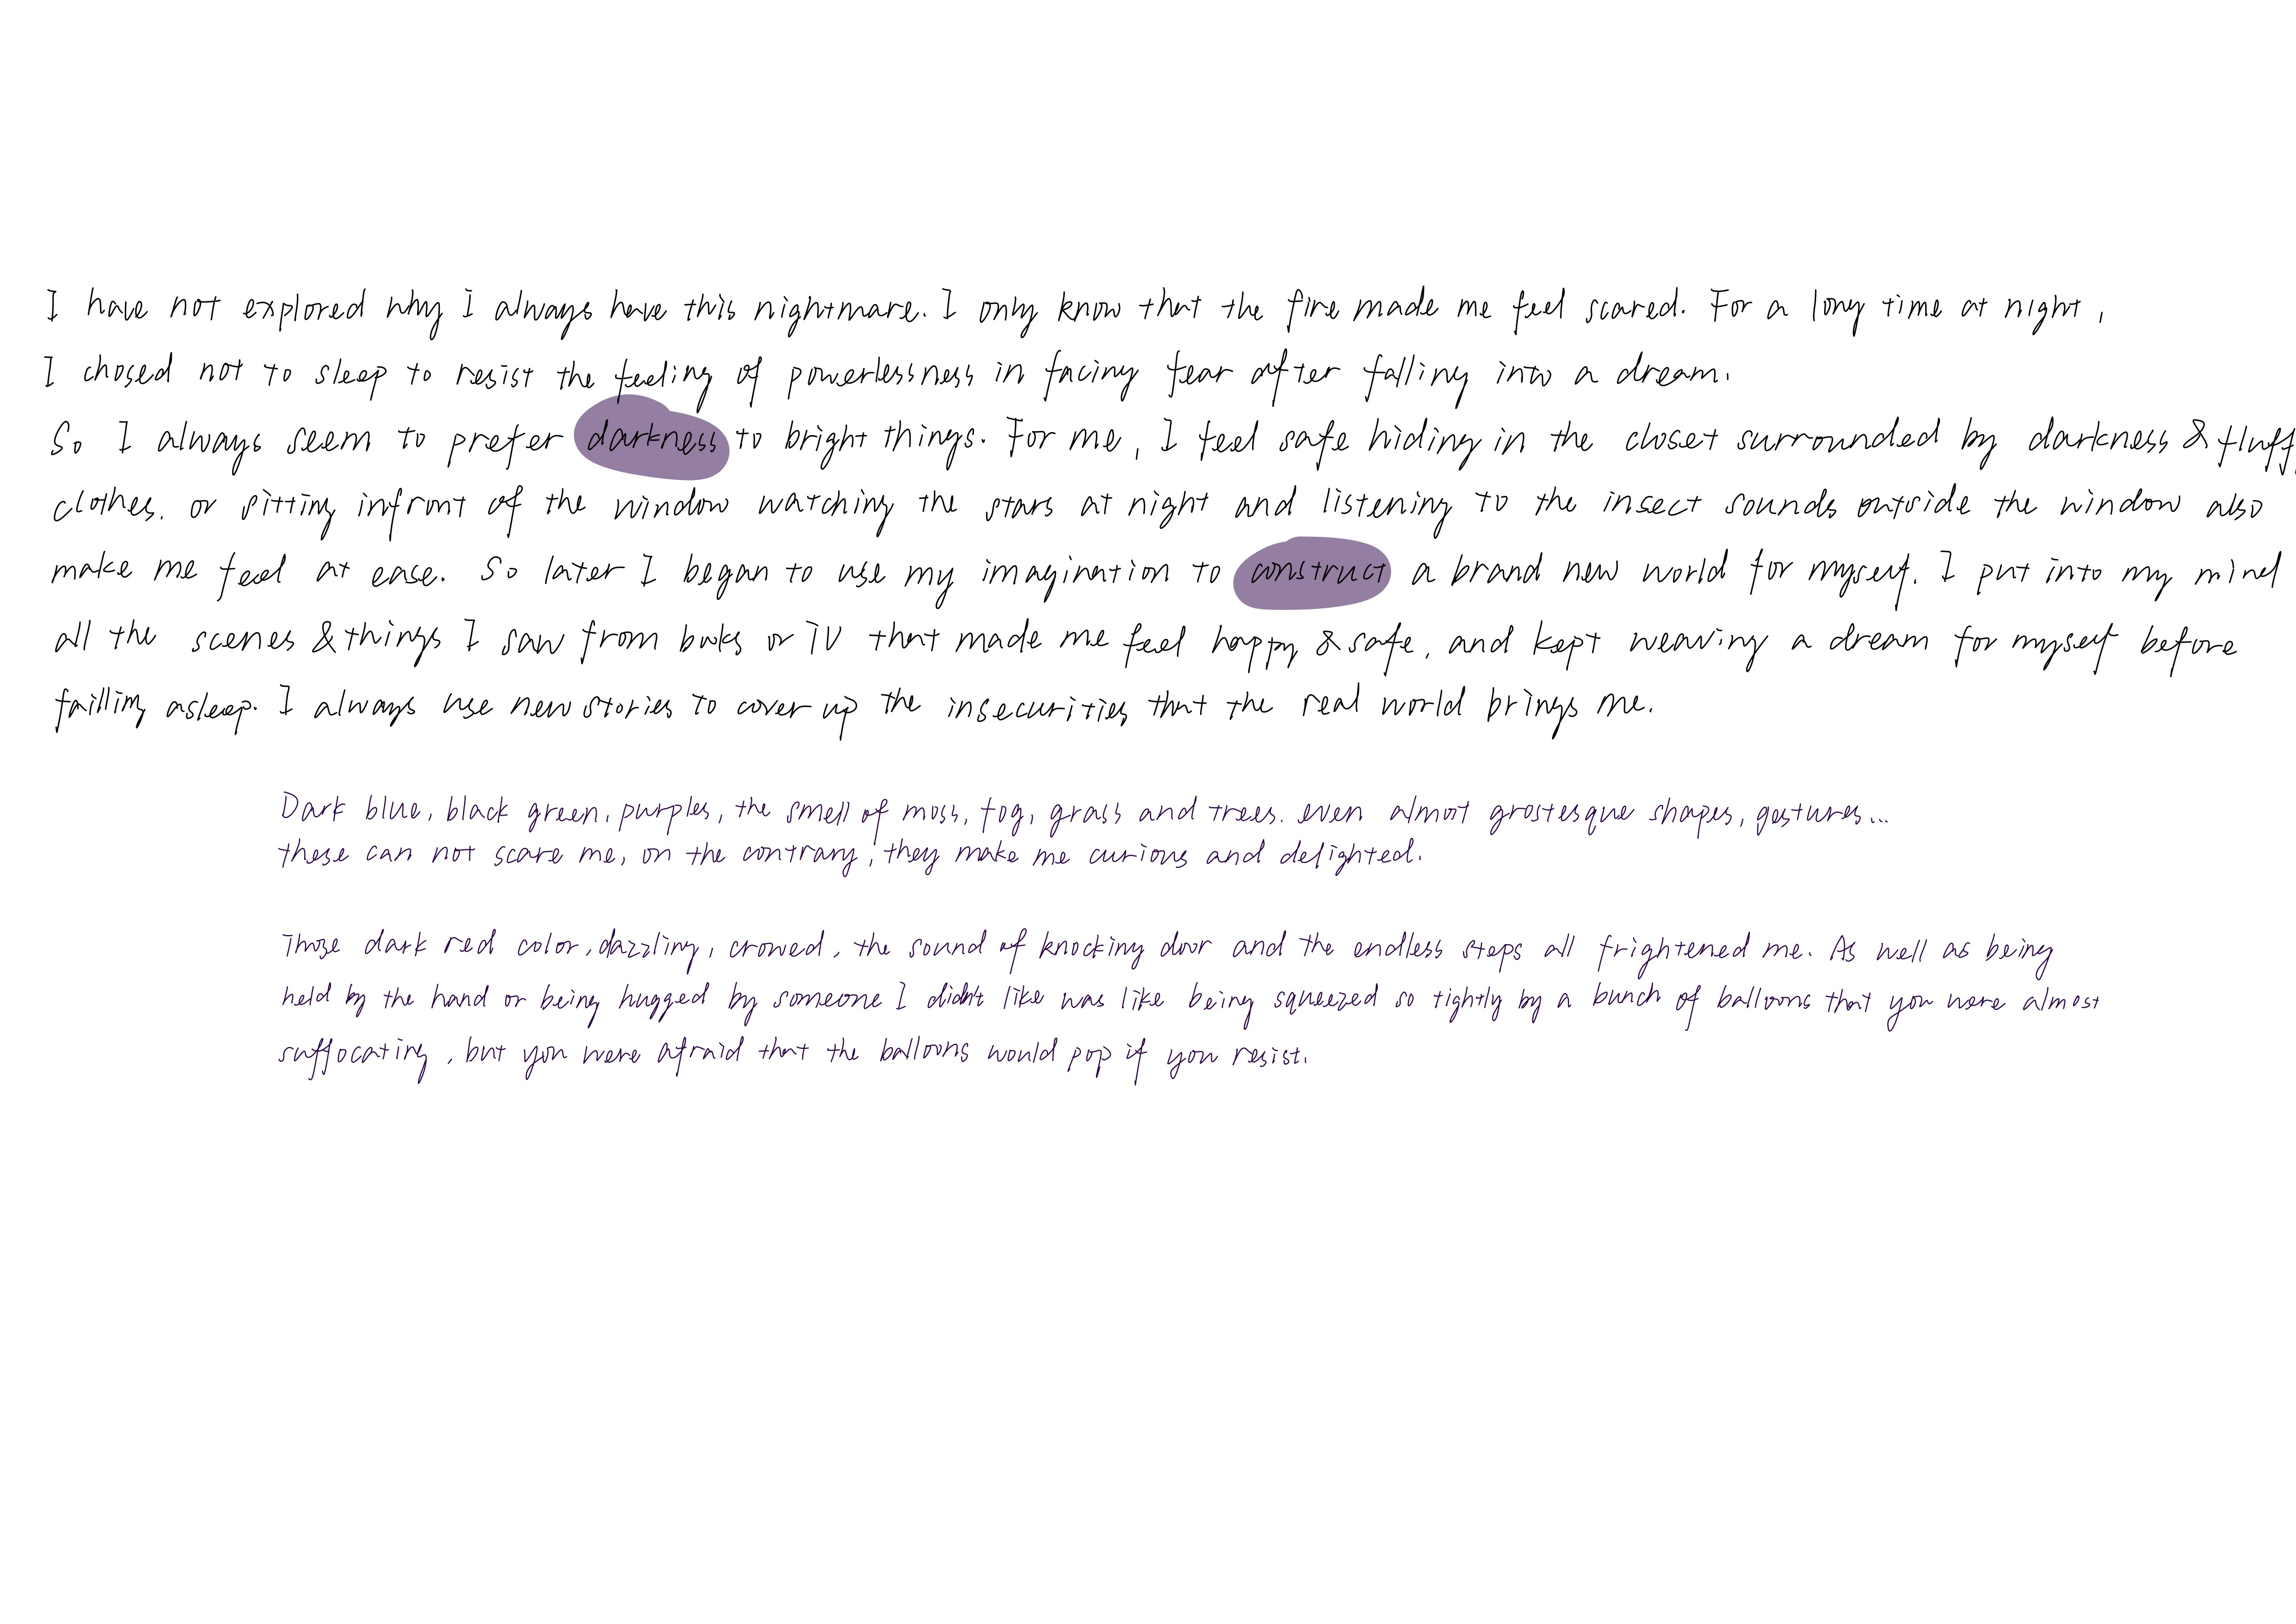 I have not explored why I always have this nightmare. I only know that the fire made me feel scared. For a long time at night,
I chosed not to sleep to resist the feeling of powerlessness in facing fear after falling into a dream.
So I always seem to prefer darkness to bright things. For me, I feel safe hiding in the closet surrounded by darkness & fluff
clothes. or sitting infront of the window watching the stars at night and listening to the insect sounds outside the window also
make me feel at ease. So later I began to use my imagination to construct a brand new world for myself. I put into my mind
all the scenes & things I saw from books or TV that made me feel happy & safe, and kept weaving a dream for myself before
failling asleep. I always use new stories to cover up the insecurities that the real world brings me.
Dark blue, black green, purples, the smell of moss, fog, grass and trees. even almost grostesque shapes, gestures...
these can not scare me, on the contrary, they make me curious and delighted.
Those dark red color, dazzling, crowed, the sound of knocking door and the endless steps all frightened me. As well as being
held by the hand or being hugged by someone I didn't like was like being squeezed so tightly by a bunch of balloons that you were almost
suffocating, but you were afraid that the balloons would pop if you resist.